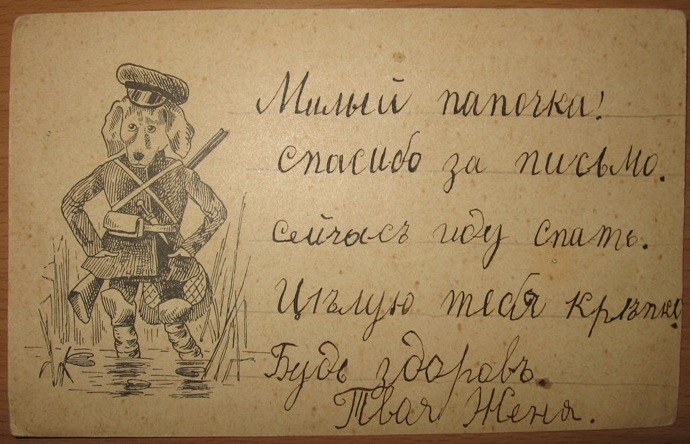 Милый папочка!
спасибо за письмо.
сейчасъ иду спать.
Цѣлую тебя крѣпко
Будь здоровъ.
Твая Женя.